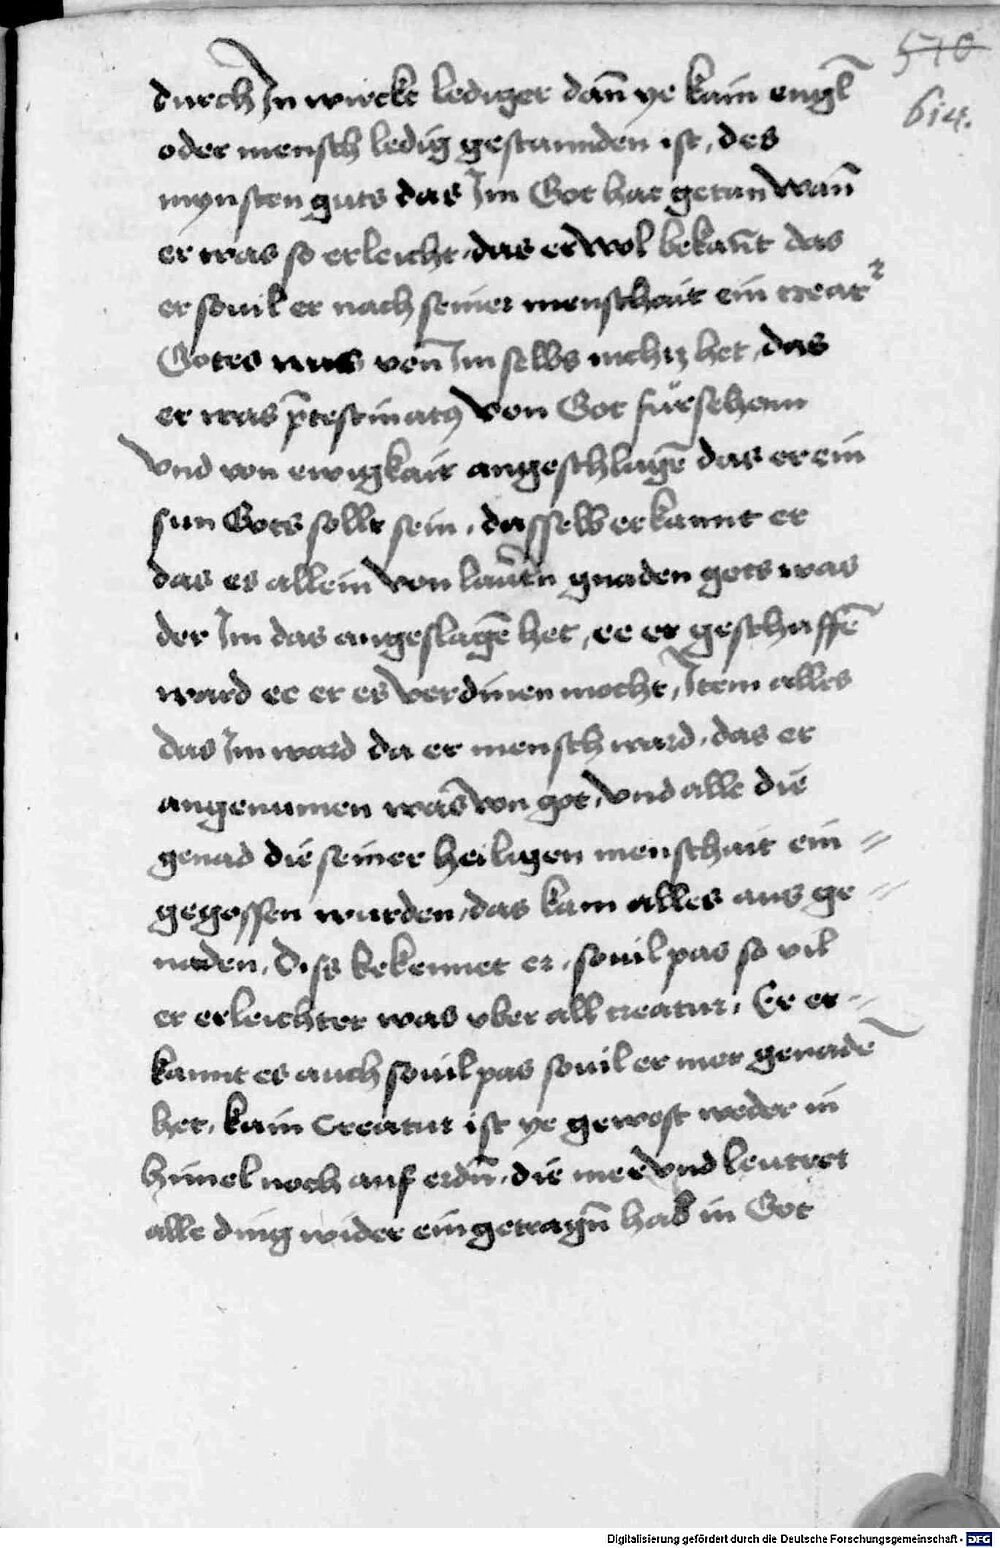 570
614.
durch Jn wirckt lediger dan̄ ye kain engl̄
oder mensch ledig gestannden ist, des
mynsten guts das Jm Got hat getan wan̄
er was so erleicht, das er wol bekan̄t das
er souil er nach seiner menschait ein creatᵘ
Gotes was von̄ Jm selbs nichtz het, das
er was p̄testinatꝰ von Got fürsehenn
vnd von ewigkait angeschlagē das er ein
sun Gots sollt sein, dasselb erkannt er
das es allein von lautn̄ gnaden gots was
der Jm das angeslagē het, ee er geschaffē
ward ee er es verdinen mocht, Jtem alles
das Jm ward da er mensch ward, das er
angenumen was von got, vnd alle die
genad die seiner heiligen menschait ein //
gegossen wurden, das kam alles aus ge //
naden, Diss bekennet er, souil pas so vil
er erleichter was vber all creatur, Er er //
kannt es auch souil pas souil er mer genadē
het, kain Creatur ist ye gewest weder in
himel noch auf erdn̄, die mer vnd leutret
alle ding wider eingetragn̄ hab in Got
Digitalisierung gefördert durch die Deutsche Forschungsgemeinschaft - DFG